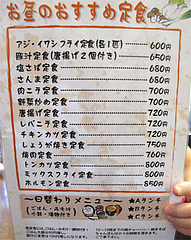 お昼のおすすめ定食
アジ・イワシフライ定食(各1匹) 600円
豚汁定食(唐揚げ2個付き) 650円
塩さば定食 680円
さんま定食 680円
肉ニラ定食 700円
野菜炒め定食 700円
唐揚げ定食 720円
レバニラ定食 720円
チキンカツ定食 720円
しょうが焼き定食 750円
焼肉定食 760円
トンカツ定食 800円
ミックスフライ定食 800円
ホルモン定食 850円
〜日替わりメニュー〜
(ごはん・みそ汁・小鉢・漬物付き)
★Aランチ
★Bランチ
★Cランチ